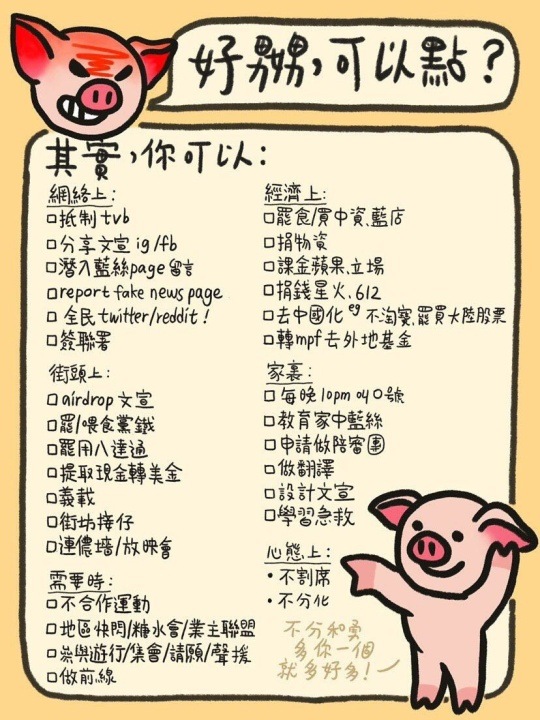 好嬲,可以點?
其實,你可以:
網絡上:
□抵制tvb
□分享文宣ig/fb
□潛入藍絲page留言
□report fake news page
□全民twitter/reddit!
□簽聯署
街頭上:
□airdrop文宣
□罷/喂食黨鐵
□罷用八達通
□提取現金轉美金
□義載
□街坊接仔
□連儂墻/放映會
需要時:
□不合作運動
□地區快閃/糖水會/業主聯盟
□參與遊行/集會/請願/聲援
□做前線
經濟上:
□罷食/買中資、藍店
□捐物資
□課金蘋果、立場
□捐錢星火、612
□去中國化 eg 不淘寶、罷買大陸股票
□轉mpf去外地基金
家裏:
□每晚10pm嗌口號
□教育家中藍絲
□申請做陪審團
□做翻譯
□設計文宣
□學習急救
心態上:
•不割席
•不分化
不分和勇
多你一個
就多好多!